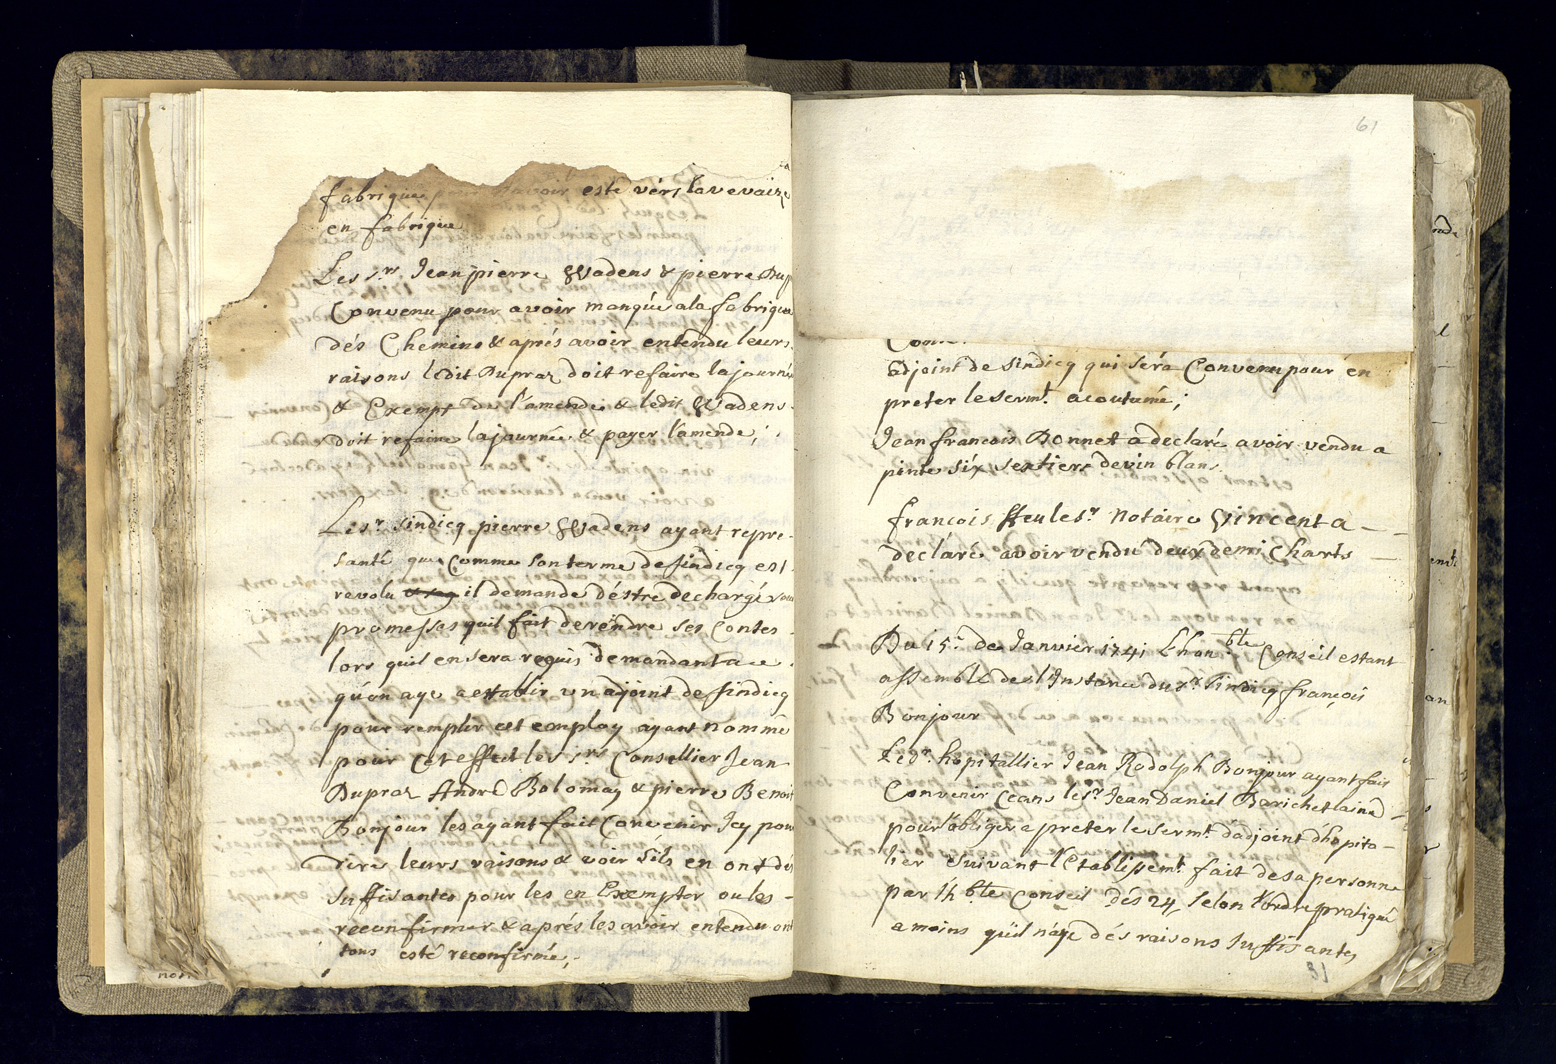 fabrique pour n'avoir esté vérs lavevaize
en fabrique
Les s.rs Jean pierre Wadens & pierre Dup
Convenu pour avoir manqué a la fabrique
dés Chemins & aprés avoir entendu leurs
raisons lédit Dupraz doit refaire la journée
& Exempt de l'amende & lédit Wadens
doit refaire la journée & payer l'amende;
Le s.r sindicq pierre Wadens ayant repre-
santé que Comme son terme de sindicq est
revolu il demande d'éstre dechargé sou
promesses quil fait de réndre ses Contes
lors quil en sera requis demandant a ce
qu'on aye a establir un adjoint de sindicq
pour remplir cet employ ayant nommé
pour Cet effect les s.rs Consellier Jean
Dupraz André Bolomay & pierre Benoit
Bonjour les ayant fait Convenir Icy pour
dire leurs raisons & voir s'ils en ont dés
suffisantes pour les en Exempter ou les
reconfirmer & aprés les avoir entendu ont
tous esté reconfirmé;
non
61
adjoint de sindicq qui séra Convenu pour én
preter le serm.t acoutumé;
Jean francois Bonnet a declaré avoir vendu a
pinte six sextiers de vin blans
francois ffeu le s.r notaire Vincent a
declaré avoir vendu deux demi Charts
Du 15.e de Janvier 1741 L'hon.ble Conseil estant
assemblé de l'Instance du s.r sindicq françois
Bonjour
Led.r hopitallier Jean Rodolph Bonjour ayant fait
Convenir Ceans le s.r Jean Daniel Barichet lainé
pour l'obliger a preter le serm.t d'adjoint d'hopita-
lier suivant l'Etablissem.t fait de sa personne
par l'h.ble Conseil dés 24 selon l'ordre pratiqué
a moins qu'il naye dés raisons suffisantes
31